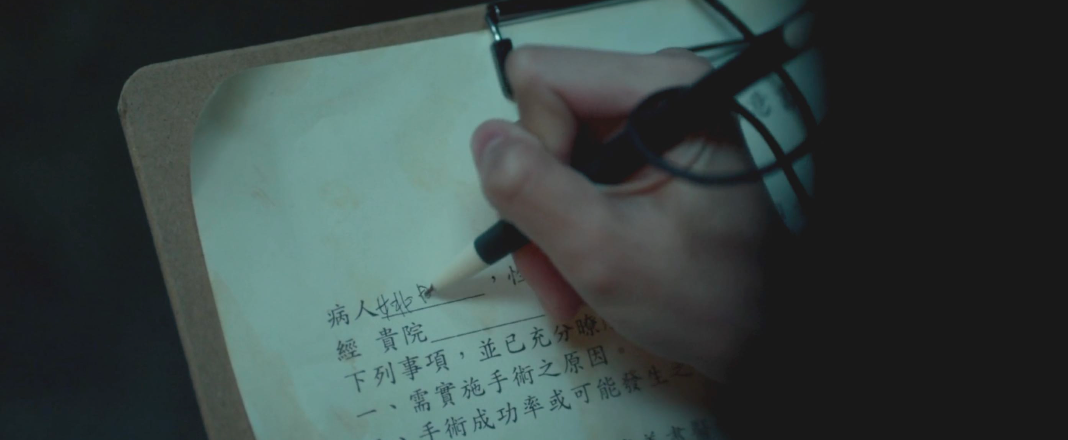 病人姚，性
經 貴院
下列事項，並已充分瞭
一、需實施手術之原因。
、手術成功率或可能發生之